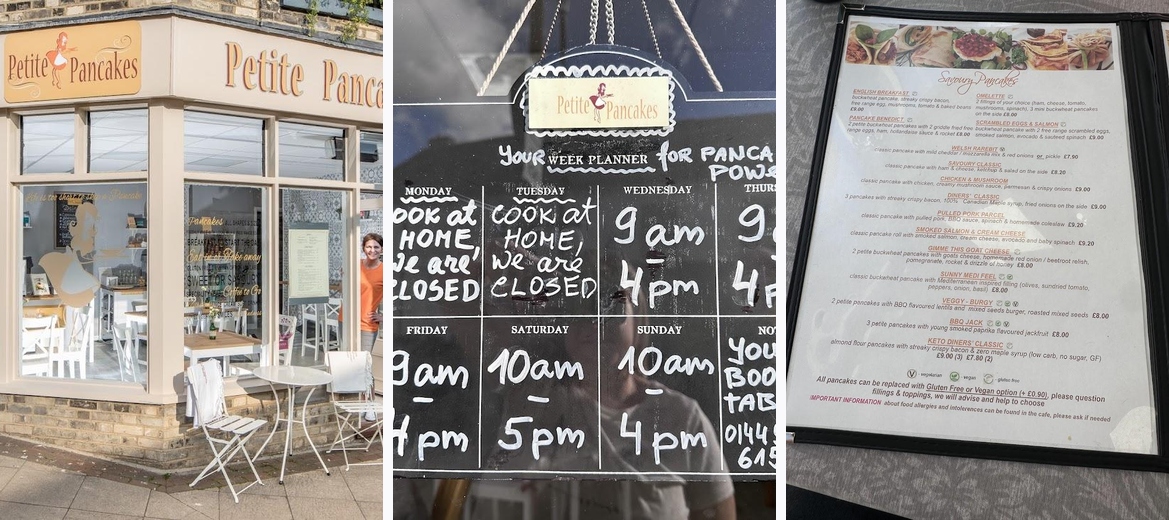 Petite Pancakes
Petite Panca
Pancakes
Petite Pancakes
YOUR WEEK PLANNER for PANCA
POWE
MONDAY TUESDAY WEDNESDAY THURS
OOK at HOME, we are CLOSED
COOK at HOME, we are CLOSED
9am – 4pm
9 4p
FRIDAY SATURDAY SUNDAY NO
9am – 4pm
10am – 5pm
10am – 4pm
YOU BOO TAB 0144 615
Savoury Pancakes
ENGLISH BREAKFAST
buckwheat pancake, streaky crispy bacon,
free range egg, mushrooms, tomato & baked beans
£9.00
OMELETTE
2 fillings of your choice (ham, cheese, tomato,
mushrooms, spinach), 3 mini buckwheat pancakes
on the side £8.00
PANCAKE BENEDICT
2 petite buckwheat pancakes with 2 griddle fried free
range eggs, ham, hollandaise sauce & rocket £8.00
SCRAMBLED EGGS & SALMON
buckwheat pancake with 2 free range scrambled eggs,
smoked salmon, avocado & sauteed spinach £9.90
WELSH RAREBIT
classic pancake with mild cheddar / mozzarella mix & red onions or pickle £7.90
SAVOURY CLASSIC
classic pancake with ham & cheese, ketchup & salad on the side £8.20
CHICKEN & MUSHROOM
classic pancake with chicken, creamy mushroom sauce, parmesan & crispy onions £9.00
DINERS' CLASSIC
3 pancakes with streaky crispy bacon, 100% Canadian Maple syrup, fried onions on the side £9.20
PULLED PORK PARCEL
classic pancake with pulled pork, BBQ sauce, spinach & homemade coleslaw £9.20
SMOKED SALMON & CREAM CHEESE
classic pancake roll with smoked salmon, cream cheese, avocado and baby spinach £9.20
GIMME THIS GOAT CHEESE
2 petite buckwheat pancakes with goats cheese, homemade red onion / beetroot relish,
pomegranate, rocket & drizzle of honey £8.00
SUNNY MEDI FEEL
classic buckwheat pancake with Mediterranean inspired filling (olives, sundried tomato,
peppers, onion, basil) £8.00
VEGGY - BURGY
2 petite pancakes with BBQ flavoured lentils and mixed seeds burger, roasted mixed seeds £8.00
BBQ JACK
3 petite pancakes with young smoked paprika flavoured jackfruit £8.00
KETO DINERS' CLASSIC
almond flour pancakes with streaky crispy bacon & zero maple syrup (low carb, no sugar, GF)
£9.00 (3) £7.80 (2)
V - vegetarian - vegan - gluten free
All pancakes can be replaced with Gluten Free or Vegan option (+ £0.90), please question
fillings & toppings, we will advise and help to choose
IMPORTANT INFORMATION about food allergies and intolerances can be found in the cafe, please ask if needed